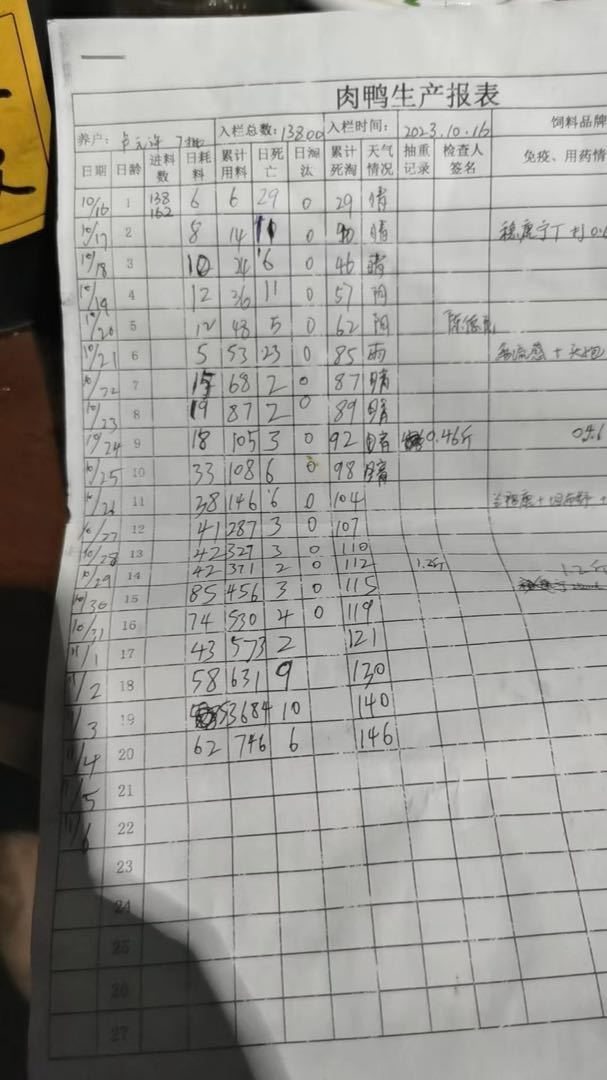 肉鸭生产报表
养户: 7批 入栏总数: 13800 入栏时间: 2023.10.16 饲料品牌
日期 日龄 进料数 日耗料 累计用料 日死亡 日淘汰 累计死淘 天气情况 抽重记录 检查人签名 免疫、用药情
10/16 1 138 162 6 6 29 0 29 晴
10/17 2 8 14 11 0 晴
10/18 3 10 24 6 0 46 晴
10/19 4 12 36 11 0 57 阴
10/20 5 12 48 5 0 62 阴
10/21 6 5 53 23 0 85 雨
10/22 7 15 68 2 0 87 晴
10/23 8 19 87 2 0 89 晴
10/24 9 18 105 3 0 92 晴 0.46斤
10/25 10 33 108 6 0 98 晴
10/26 11 38 146 6 0 104
10/27 12 41 287 3 0 107
10/28 13 42 327 3 0 110
10/29 14 42 371 2 0 112 1.2斤 1.2斤
10/30 15 85 456 3 0 115
10/31 16 74 530 4 0 119
11/1 17 43 573 2 121
11/2 18 58 631 9 130
11/3 19 53 684 10 140
11/4 20 62 746 6 146
11/5 21
11/6 22
23
24
25
26
27